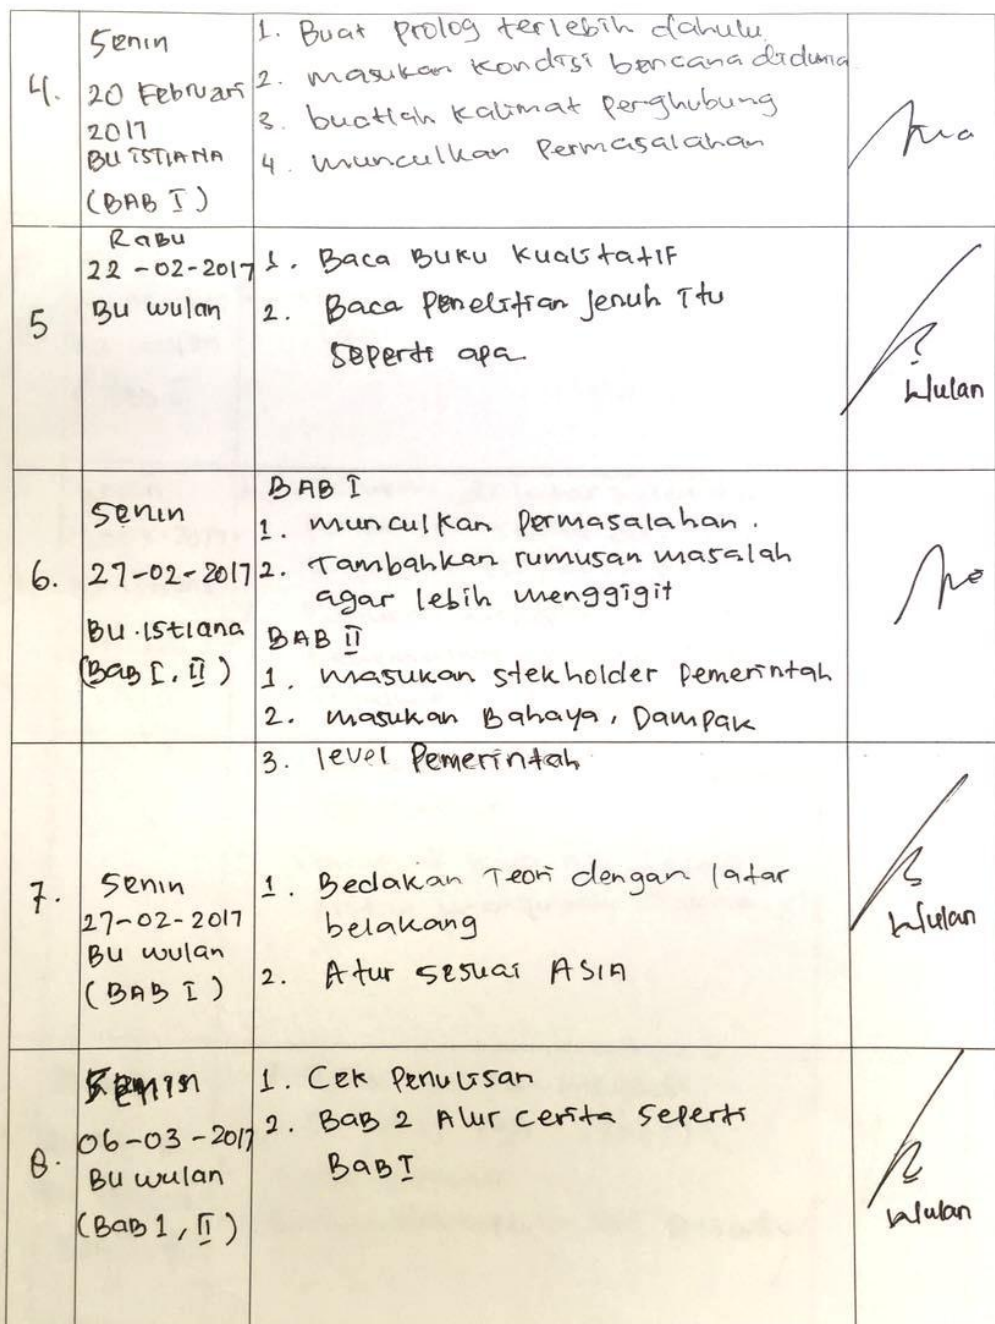 4.
Senin
20 Februari
2017
BU ISTIANA
(BAB I)
1. Buat prolog terlebih dahulu
2. masukan kondisi bencana didunia
3. buatlah kalimat perghubung
4. munculkan permasalahan
5
Rabu
22-02-2017
Bu wulan
1. Baca Buku kualitatif
2. Baca penelitian jenuh itu
seperti apa.
Wulan
6.
Senin
27-02-2017
Bu.Istiana
(Bab I, II)
BAB I
1. munculkan permasalahan.
2. Tambahkan rumusan masalah
agar lebih menggigit
BAB II
1. masukan stekholder pemerintah
2. masukan Bahaya, Dampak
3. level pemerintah
7.
Senin
27-02-2017
Bu wulan
(BAB I)
1. Bedakan Teori dengan latar
belakang
2. Atur sesuai ASIA
Wulan
8.
Senin
06-03-2017
Bu wulan
(Bab 1, II)
1. Cek penulisan
2. Bab 2 Alur cerita seperti
Bab I
Wulan